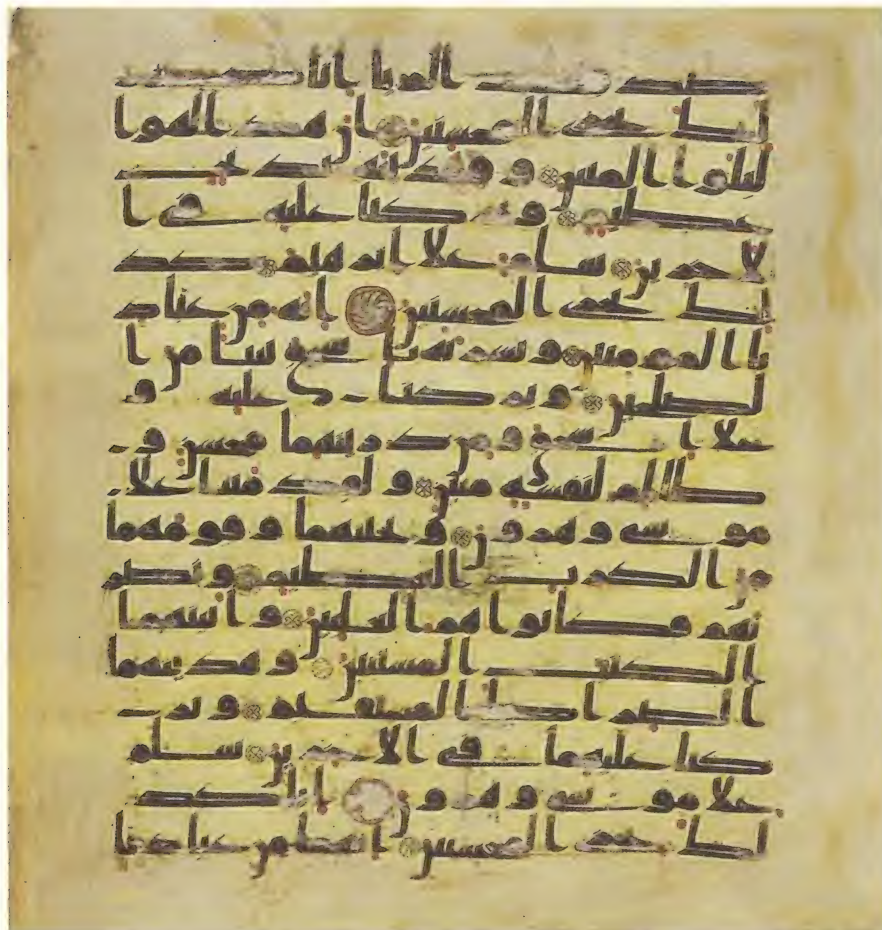 صدقت الريا انا كذ
لك نجزى المحسنين ان هذا لهوا
لبلوا المبين وفدينه بذبح
عظيم وتركنا عليه فى ا
لاخرين سلم علا ابرهيم كذ
لك نجزى المحسنين انه من عباد
نا المومنين وبشرنه باسحق نبيا من ا
لصلحين وبركنا عليه و
علا اسحق ومن ذريتهما محسن و
ظالم لنفسه مبين ولقد مننا علا
موسى وهرون ونجينهما وقومهما
من الكرب العظيم ونصر
نهم فكانوا هم الغلبين واتينهما
الكتب المستبين وهدينهما
الصراط المستقيم وتر
كنا عليهما فى الاخرين سلم
علا موسى وهرون انا كذ
لك نجزى المحسنين انهما من عبادنا